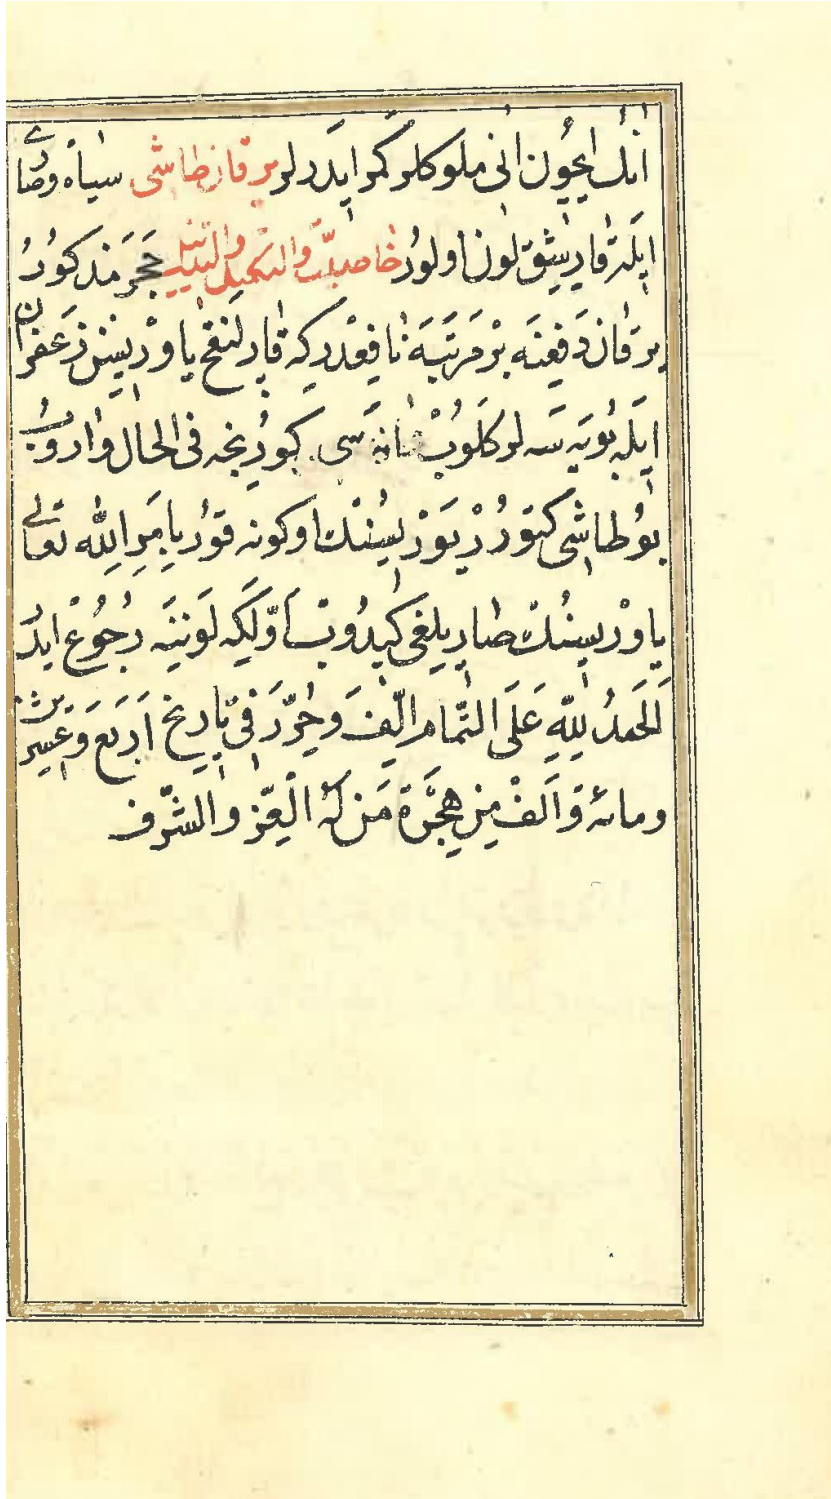 انك ايچون انی ملوكلر كمر ايدرلر يرقان طاشی سياه و صاری
ايله قاريشق لون اولور خاصيت والتكميل والتذييل حجر مذكور
يرقان دفعنه بر مرتبه نافعدر كه قارلنقج ياوريسنی زعفران
ايله بويه سه لر كلوب انه سی كورنجه فی الحال واروب
بو طاشی كتورر يوريسنك اوكونه قور بامر الله تعالی
ياوريسنك صاريلغی كيدوب اولكه لوننه رجوع ايدر
الحمد لله علی التمام الف و حرر فی تاريخ اربع وعشرين
ومائه والف من هجرة من له العز والشرف